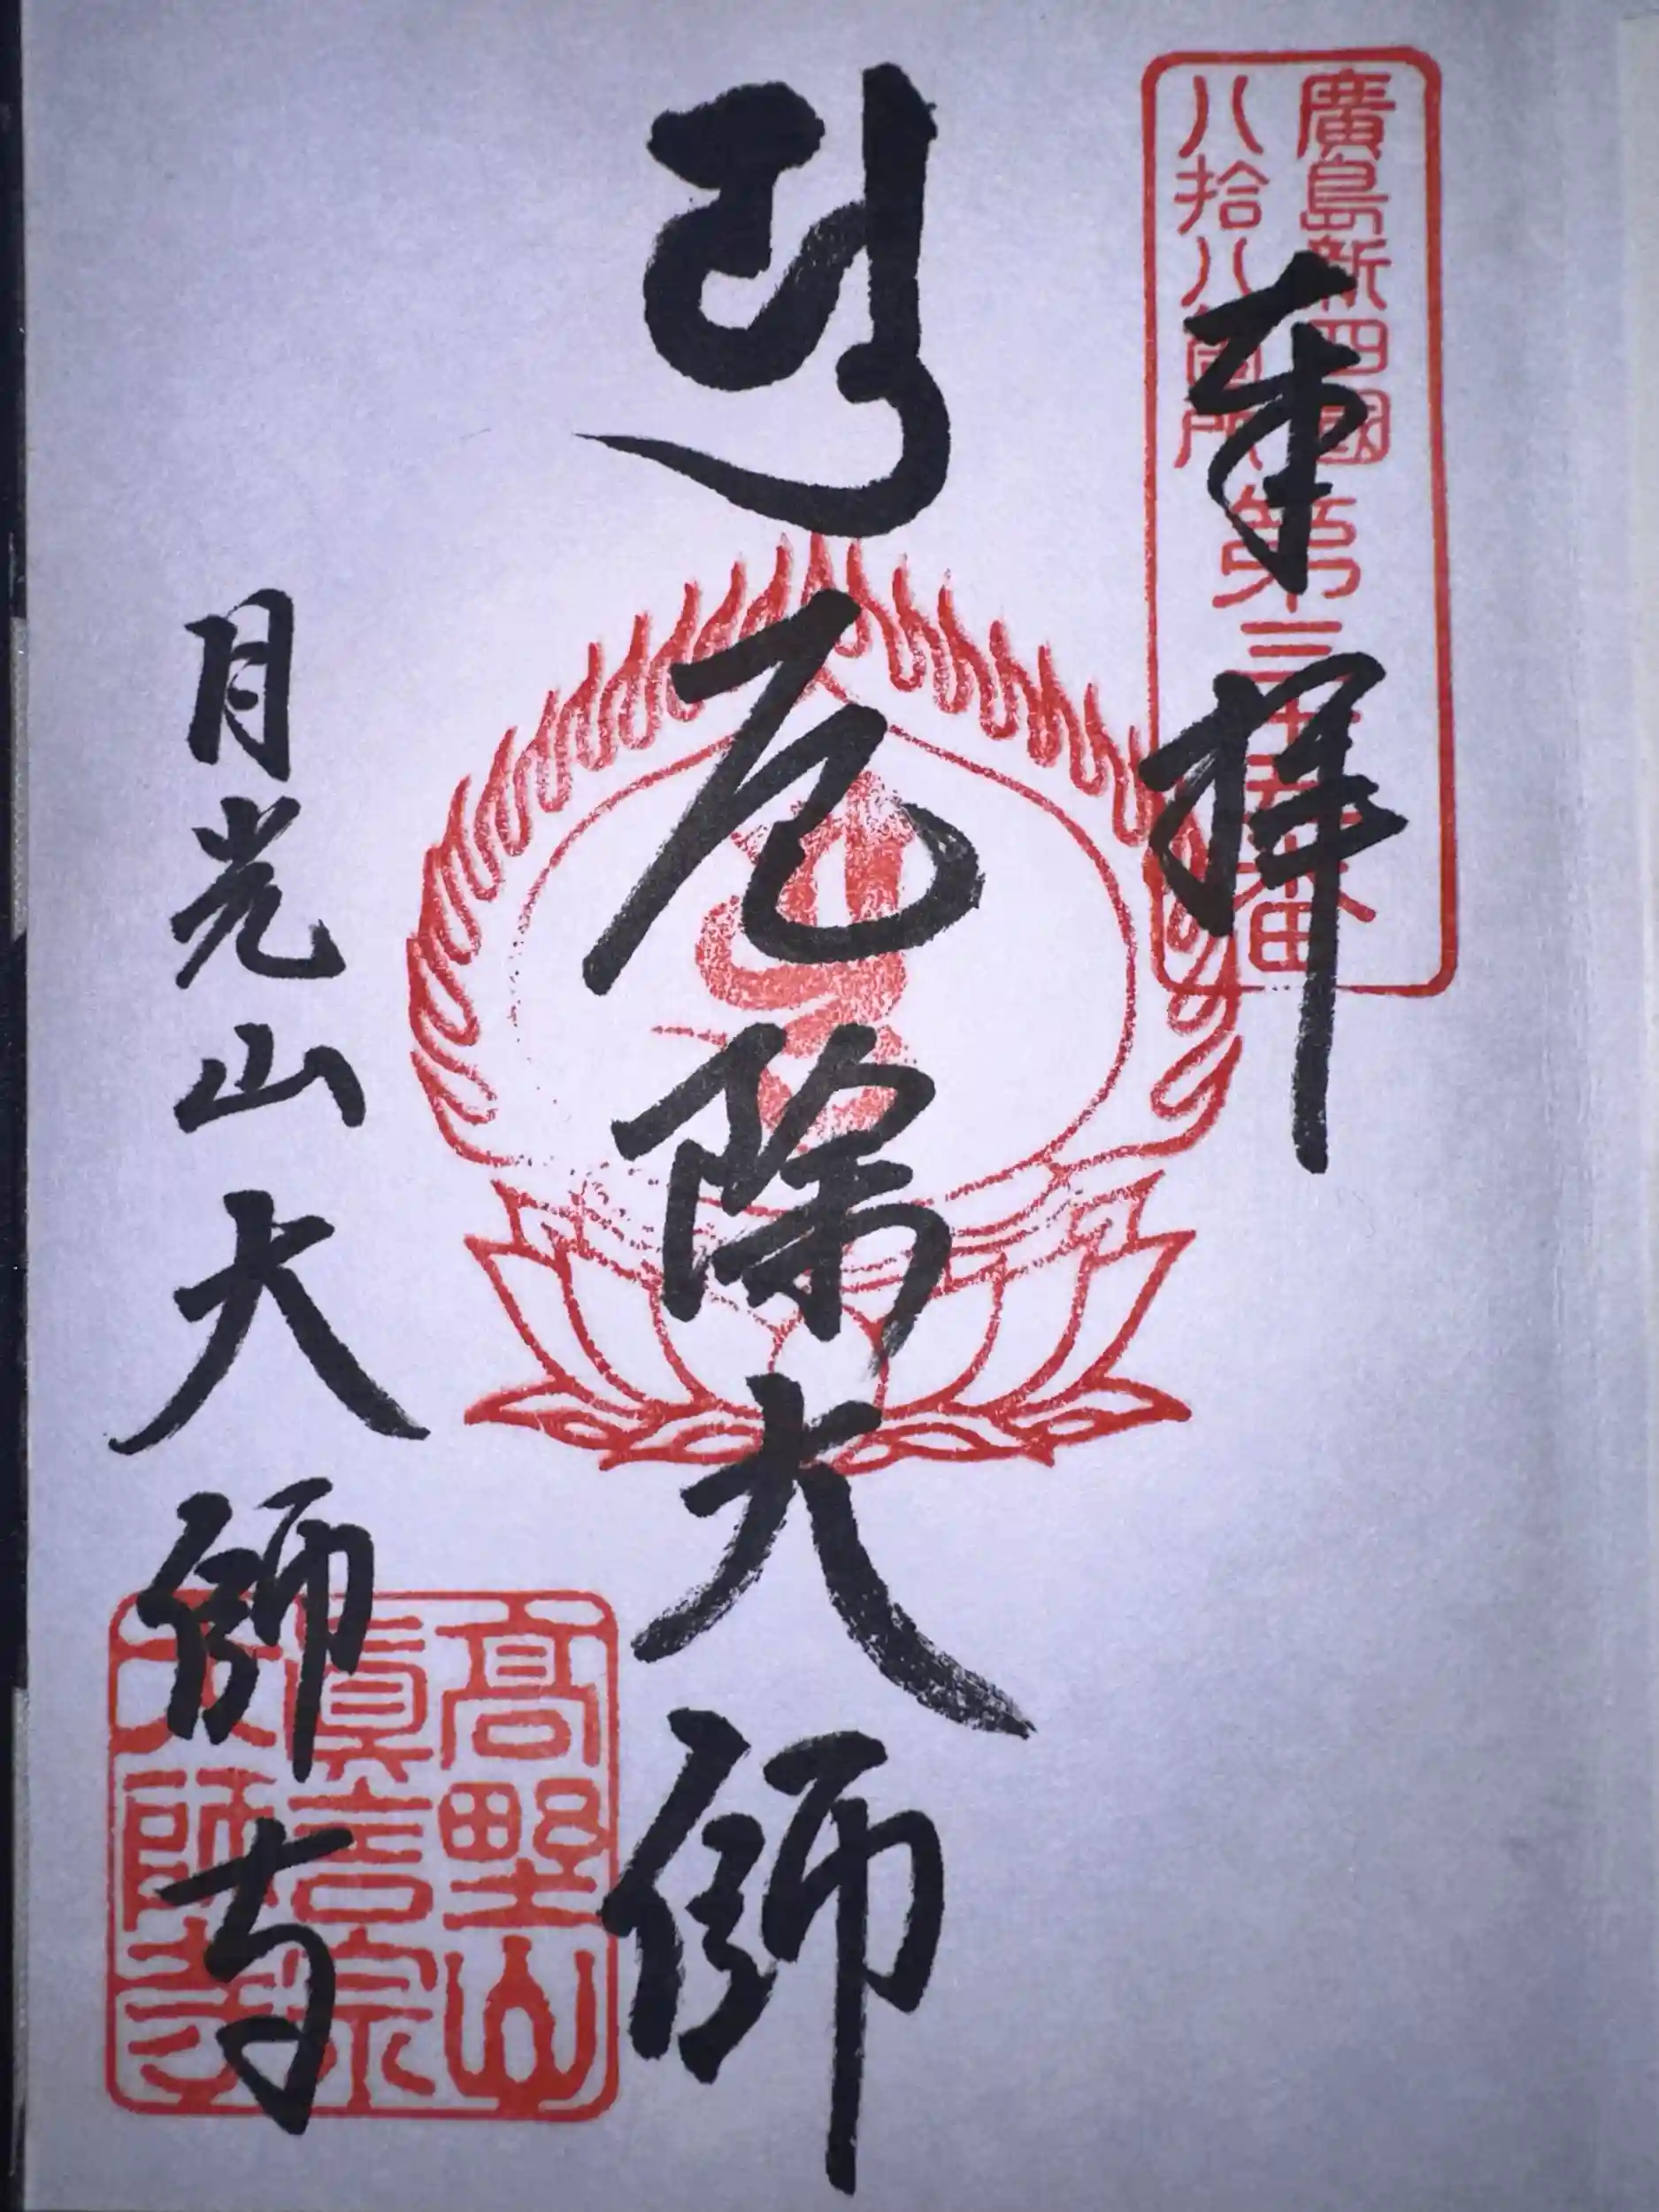 廣島新四國
八拾八箇所
第三十五番
奉拝
厄除大師
月光山大師寺
高野山
真言宗
大師寺